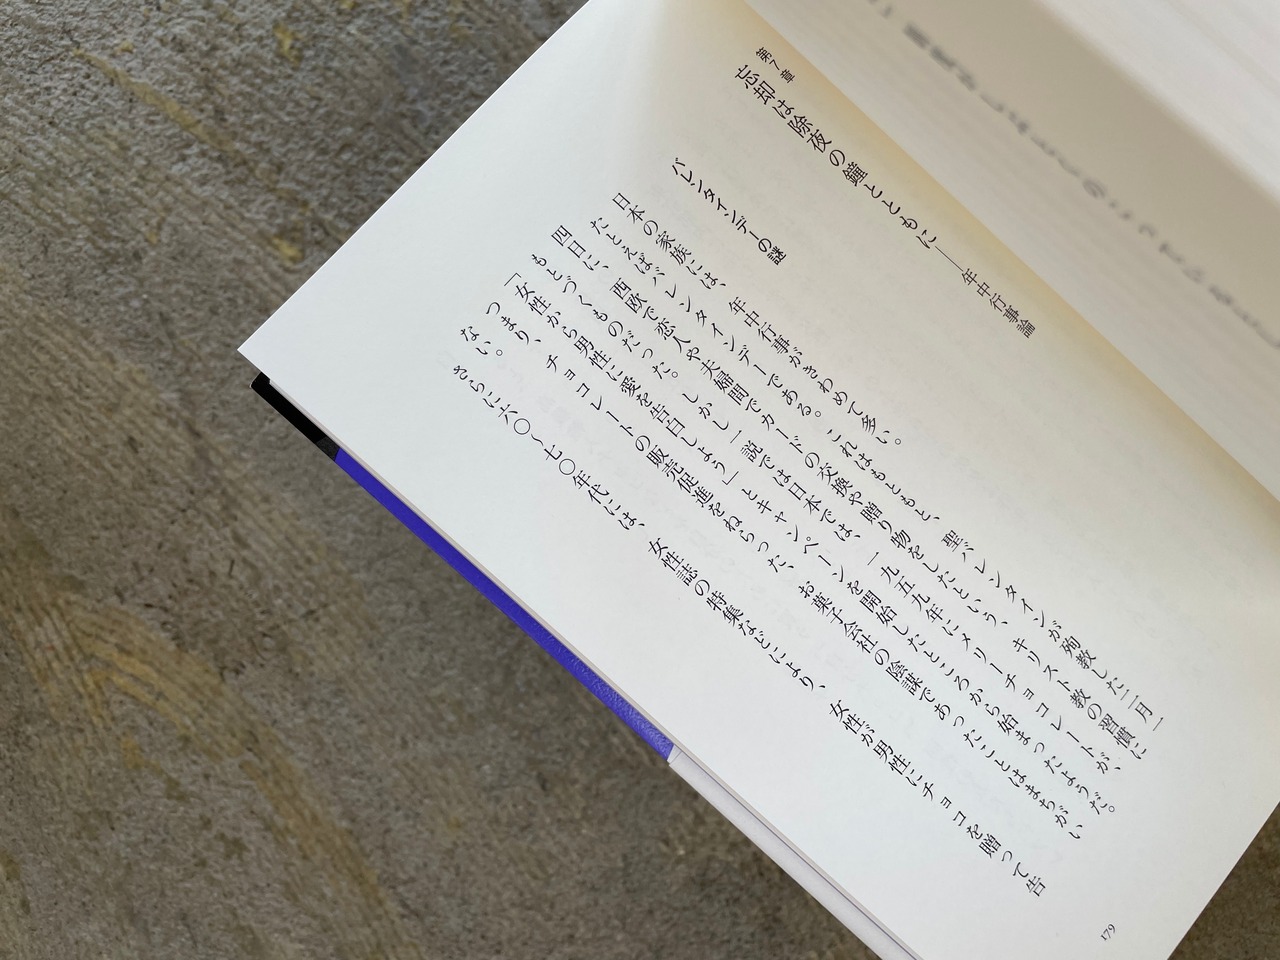 第7章
忘却は除夜の鐘とともに——年中行事論
バレンタインデーの謎
日本の家族には、年中行事がきわめて多い。
たとえばバレンタインデーである。これはもともと、聖バレンタインが殉教した二月一
四日に、西欧で恋人や夫婦間でカードの交換や贈り物をしたという、キリスト教の習慣に
もとづくものだった。しかし一説では日本では、一九五九年にメリーチョコレートが、
「女性から男性に愛を告白しよう」とキャンペーンを開始したところから始まったようだ。
つまり、チョコレートの販売促進をねらった、お菓子会社の陰謀であったことはまちがい
ない。
さらに六〇〜七〇年代には、女性誌の特集などにより、女性が男性にチョコを贈って告
179